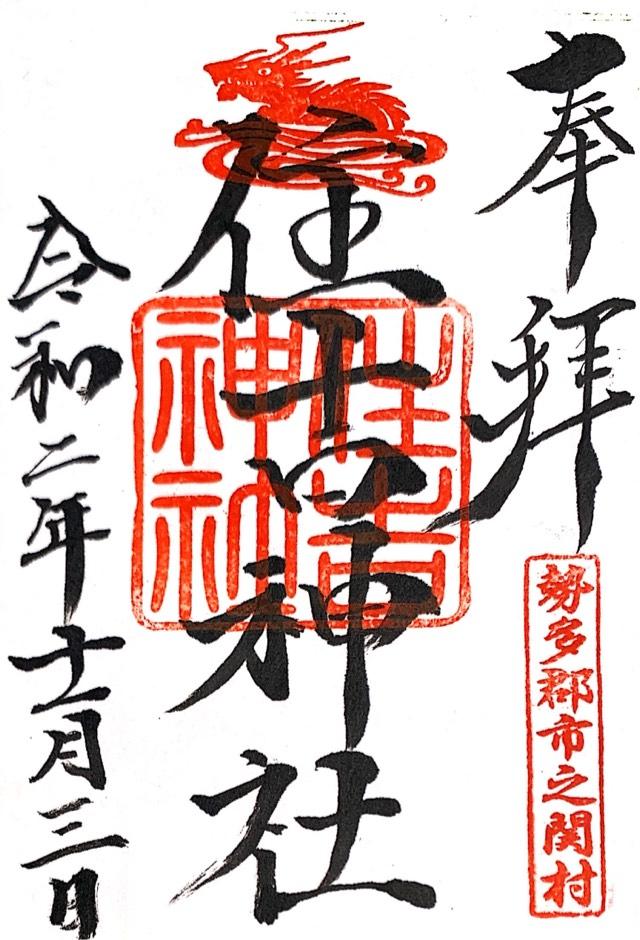 奉拝
勢多郡市之関村
住吉神社
住吉神社
令和二年十一月三日